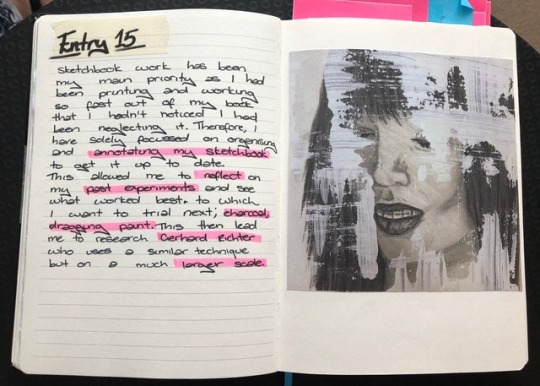 Entry 15
Sketchbook work has been
my main priority as I had
been printing and working
so fast out of my book
that I hadn't noticed I had
been neglecting it. Therefore, I
have solely focussed on organising
and annotating my sketchbook
to get it up to date.
This allowed me to reflect on
my past experiments and see
what worked best. to which
I want to trial next; charcoal,
dragging paint. This then lead
me to research Gerhard Richter
who uses a similar technique
but on a much larger scale.